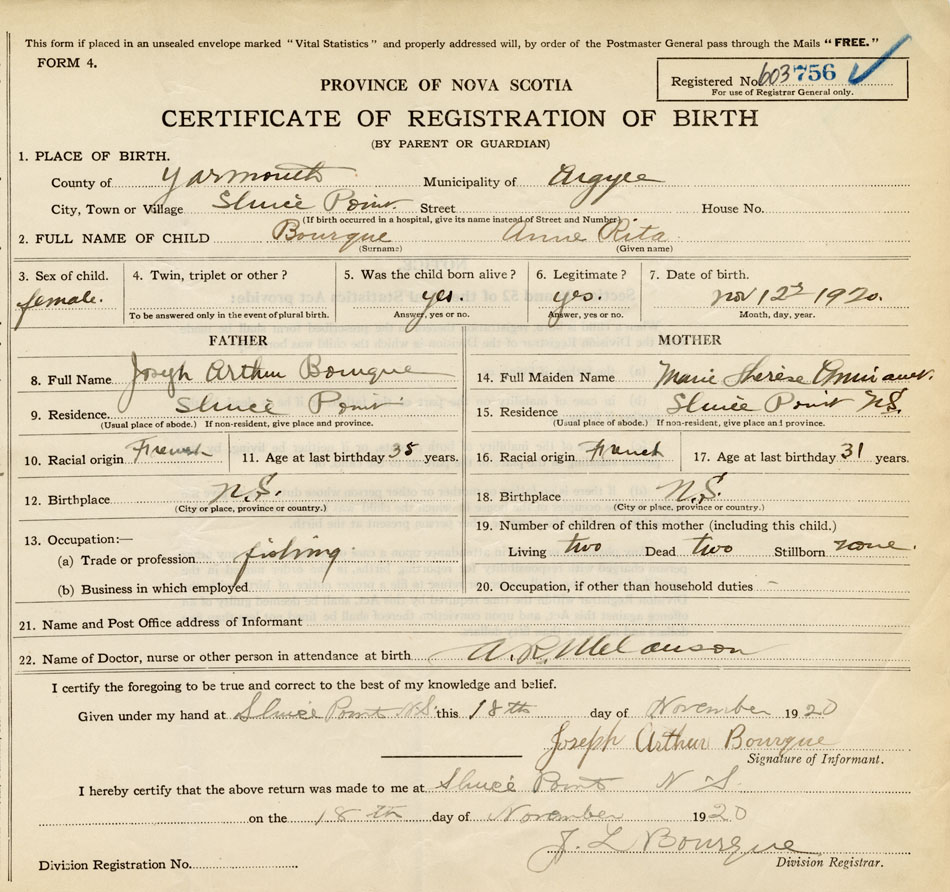 This form if placed in an unsealed envelope marked "Vital Statistics" and properly addressed will, by order of the Postmaster General pass through the Mails "FREE."
FORM 4.
Registered No. 603756
For use of Registrar General only.
PROVINCE OF NOVA SCOTIA
CERTIFICATE OF REGISTRATION OF BIRTH
(BY PARENT OR GUARDIAN)
1. PLACE OF BIRTH.
County of Yarmouth Municipality of Argyle
City, Town or Village Sluice Point Street House No.
(If birth occurred in a hospital, give its name instead of Street and Number)
2. FULL NAME OF CHILD Bourque Anne Rita
(Surname) (Given name)
3. Sex of child. 4. Twin, triplet or other? 5. Was the child born alive? 6. Legitimate? 7. Date of birth.
female. yes. yes. Nov 12 1920.
To be answered only in the event of plural birth. Answer, yes or no. Answer, yes or no. Month, day, year.
FATHER MOTHER
8. Full Name Joseph Arthur Bourque 14. Full Maiden Name Marie Therèse
9. Residence. Sluice Point 15. Residence Sluice Point N.S.
(Usual place of abode.) If non-resident, give place and province. (Usual place of abode.) If non-resident, give place and province.
10. Racial origin French 11. Age at last birthday 35 years. 16. Racial origin French 17. Age at last birthday 31 years.
12. Birthplace N.S. 18. Birthplace N.S.
(City or place, province or country.) (City or place, province or country.)
13. Occupation:— 19. Number of children of this mother (including this child.)
(a) Trade or profession fishing. Living two Dead two Stillborn none.
(b) Business in which employed 20. Occupation, if other than household duties –
21. Name and Post Office address of Informant
22. Name of Doctor, nurse or other person in attendance at birth A. R. Melanson
I certify the foregoing to be true and correct to the best of my knowledge and belief.
Given under my hand at Sluice Point N.S. this 18th day of November 1920
Joseph Arthur Bourque
Signature of Informant.
I hereby certify that the above return was made to me at Sluice Point N S
on the 18th day of November 1920
J. L Bourque
Division Registration No. Division Registrar.